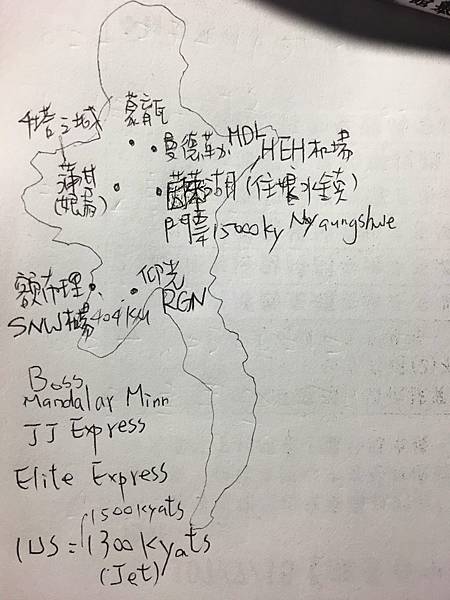 千塔之城 蒙育瓦
蒲甘 曼德勒 MDL HEH 机場
(娘烏) 茵萊湖(住娘水鎮)
門票15000ky Nyaungshwe
額布理 仰光
SNW机場 RGN
Boss
Mandalar Minn
JJ Express
Elite Express
1500kyats
1US = 1300kyats
(Jet)